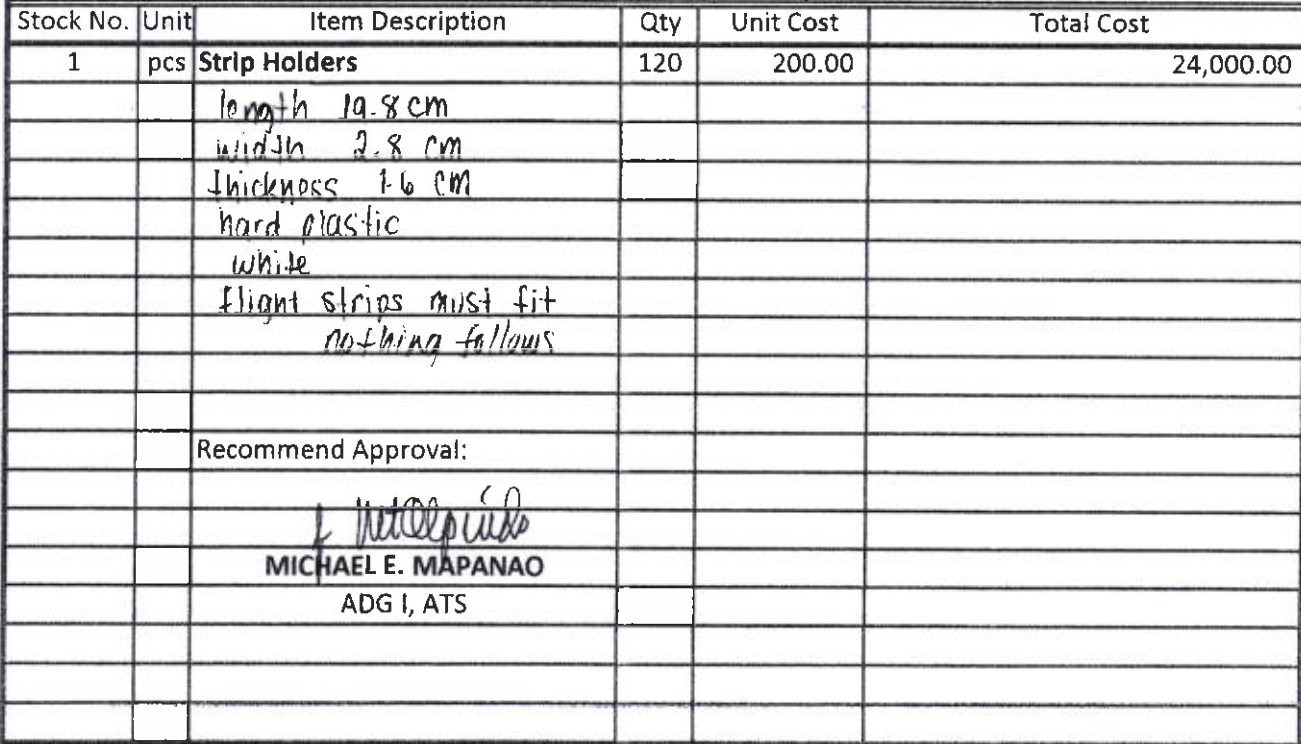 Stock No. Unit Item Description Qty Unit Cost Total Cost
1 pcs Strip Holders 120 200.00 24,000.00
length 19.8 cm
width 2.8 cm
thickness 1.6 cm
hard plastic
white
flight strips must fit
nothing follows
Recommend Approval:
MICHAEL E. MAPANAO
ADG I, ATS